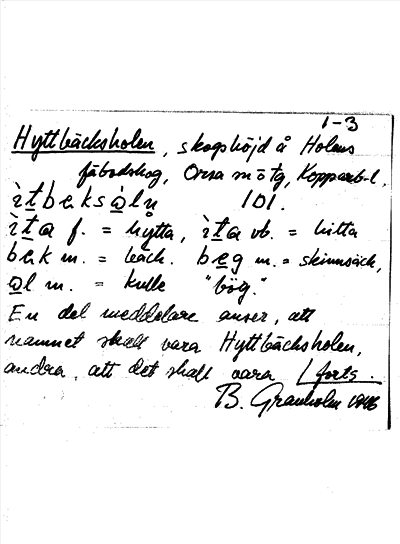 1-3
Hyttbäcksholen, skogshöjd å Holens
fäbodskog, Orsa m o tg, Kopparb.l.
ìtbeksòḷn 101.
ìta f. = hytta, ìta vb. = hitta
bek m. = bäck. beg m. = skinnsäck,
ol m. = kulle "bög."
En del meddelare anser, att
namnet skall vara Hyttbäcksholen,
andra, att det skall vara forts.
B. Granholm